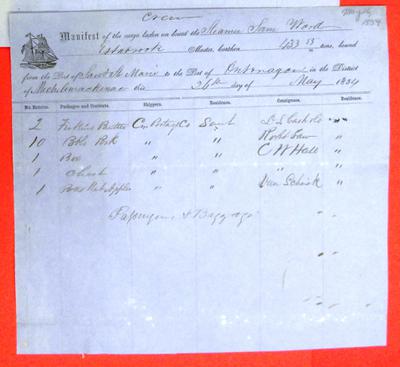 Crew
May 26
1854
Manifest of the cargo laden on board the Steamer Sam Ward
Master, burthen 433 tons, bound
from the Port of Sault Ste Marie to the Port of Ontonagon in the District
of Michilimackinac this 26th day of May 1854
No. Entries. Packages and Contents. Shippers. Residence. Consignees. Residence.
2 Firkins Butter Co Saut
10 Bbls Pork " "
1 Box " " C W Hall "
1 Chest " " "
1 Box " " Van Schaick "
Passengers & Baggage